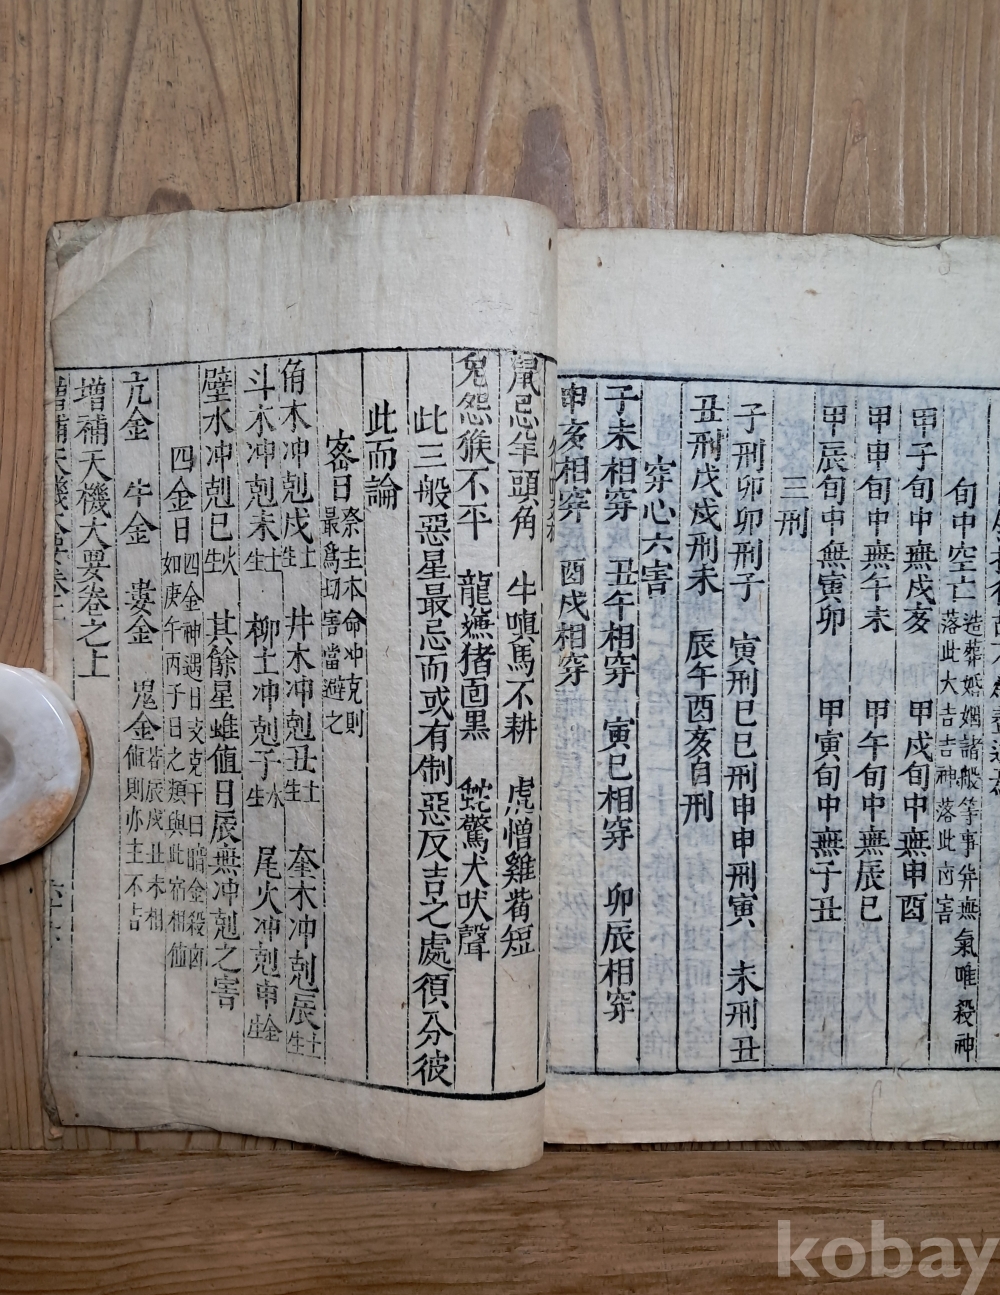 旬中空亡 造葬婚姻諸般等事年無氣唯殺神
落此大吉吉神落此內害
甲子旬中無戌亥 甲戌旬中無申酉
甲申旬中無午未 甲午旬中無辰巳
甲辰旬中無寅卯 甲寅旬中無子丑
三刑
子刑卯卯刑子 寅刑巳巳刑申申刑寅 未刑丑
丑刑戌戌刑未 辰午酉亥自刑
穿心六害
子未相穿 丑午相穿 寅巳相穿 卯辰相穿
申亥相穿 酉戌相穿
鼠忌羊頭角 牛嗔馬不耕 虎憎雞觜短
兔怨猴不平 龍嫌猪面黑 蛇驚犬吠聲
此三般惡星最忌而或有制惡反吉之處須分彼
此而論
害日 祭主本命冲克則
最爲切害當避之
角木冲剋戌土生 井木冲剋丑土生 奎木冲剋辰土生
斗木冲剋未土生 柳土冲剋子水生 尾火冲剋申金生
壁水冲剋巳火生 其餘星雖值日辰無冲剋之害
四金日 四金神遇日支克干日暗金殺凶
如庚午丙子日之類與此宿相值
亢金 牛金 婁金 鬼金 若辰戌丑未相
值則亦主不吉
增補天機大要卷之上